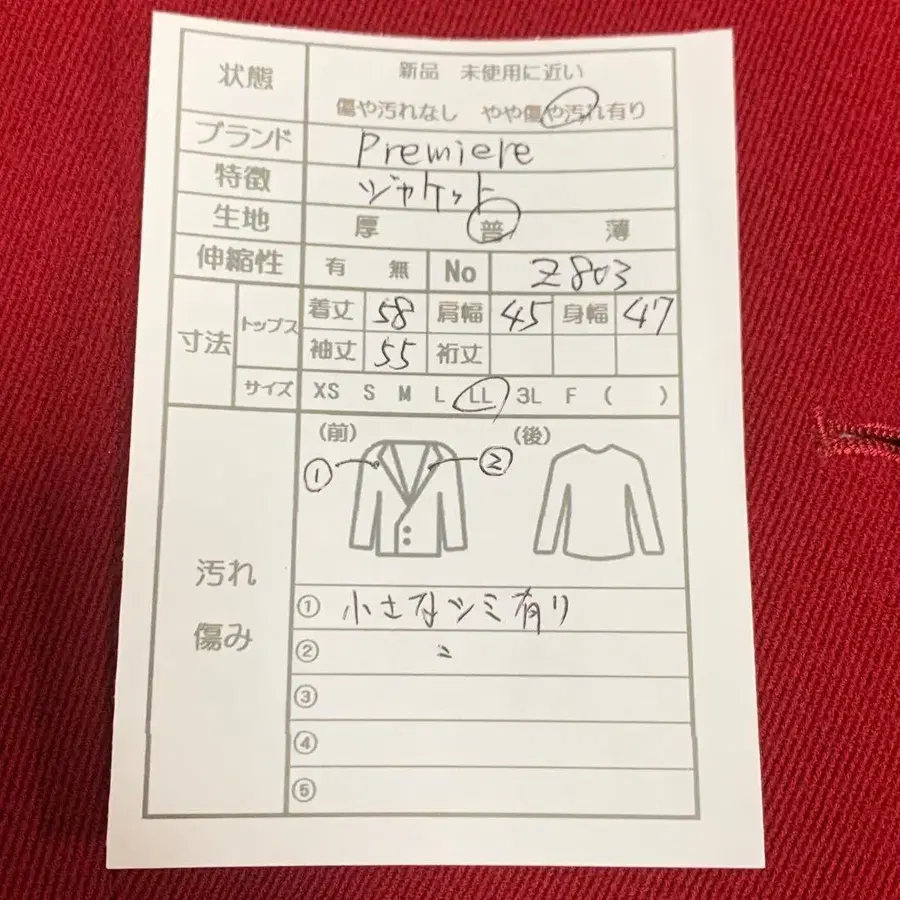 状態
新品 未使用に近い
傷や汚れなし やや傷や汚れ有り
ブランド Premiere
特徴 ジャケット
生地 厚 普 薄
伸縮性 有 無 No Z803
寸法 トップス 着丈 58 肩幅 45 身幅 47
袖丈 55 裄丈
サイズ XS S M L LL 3L F ( )
(前) (後)
① ②
汚れ
傷み
① 小さなシミ有り
② 〃
③
④
⑤